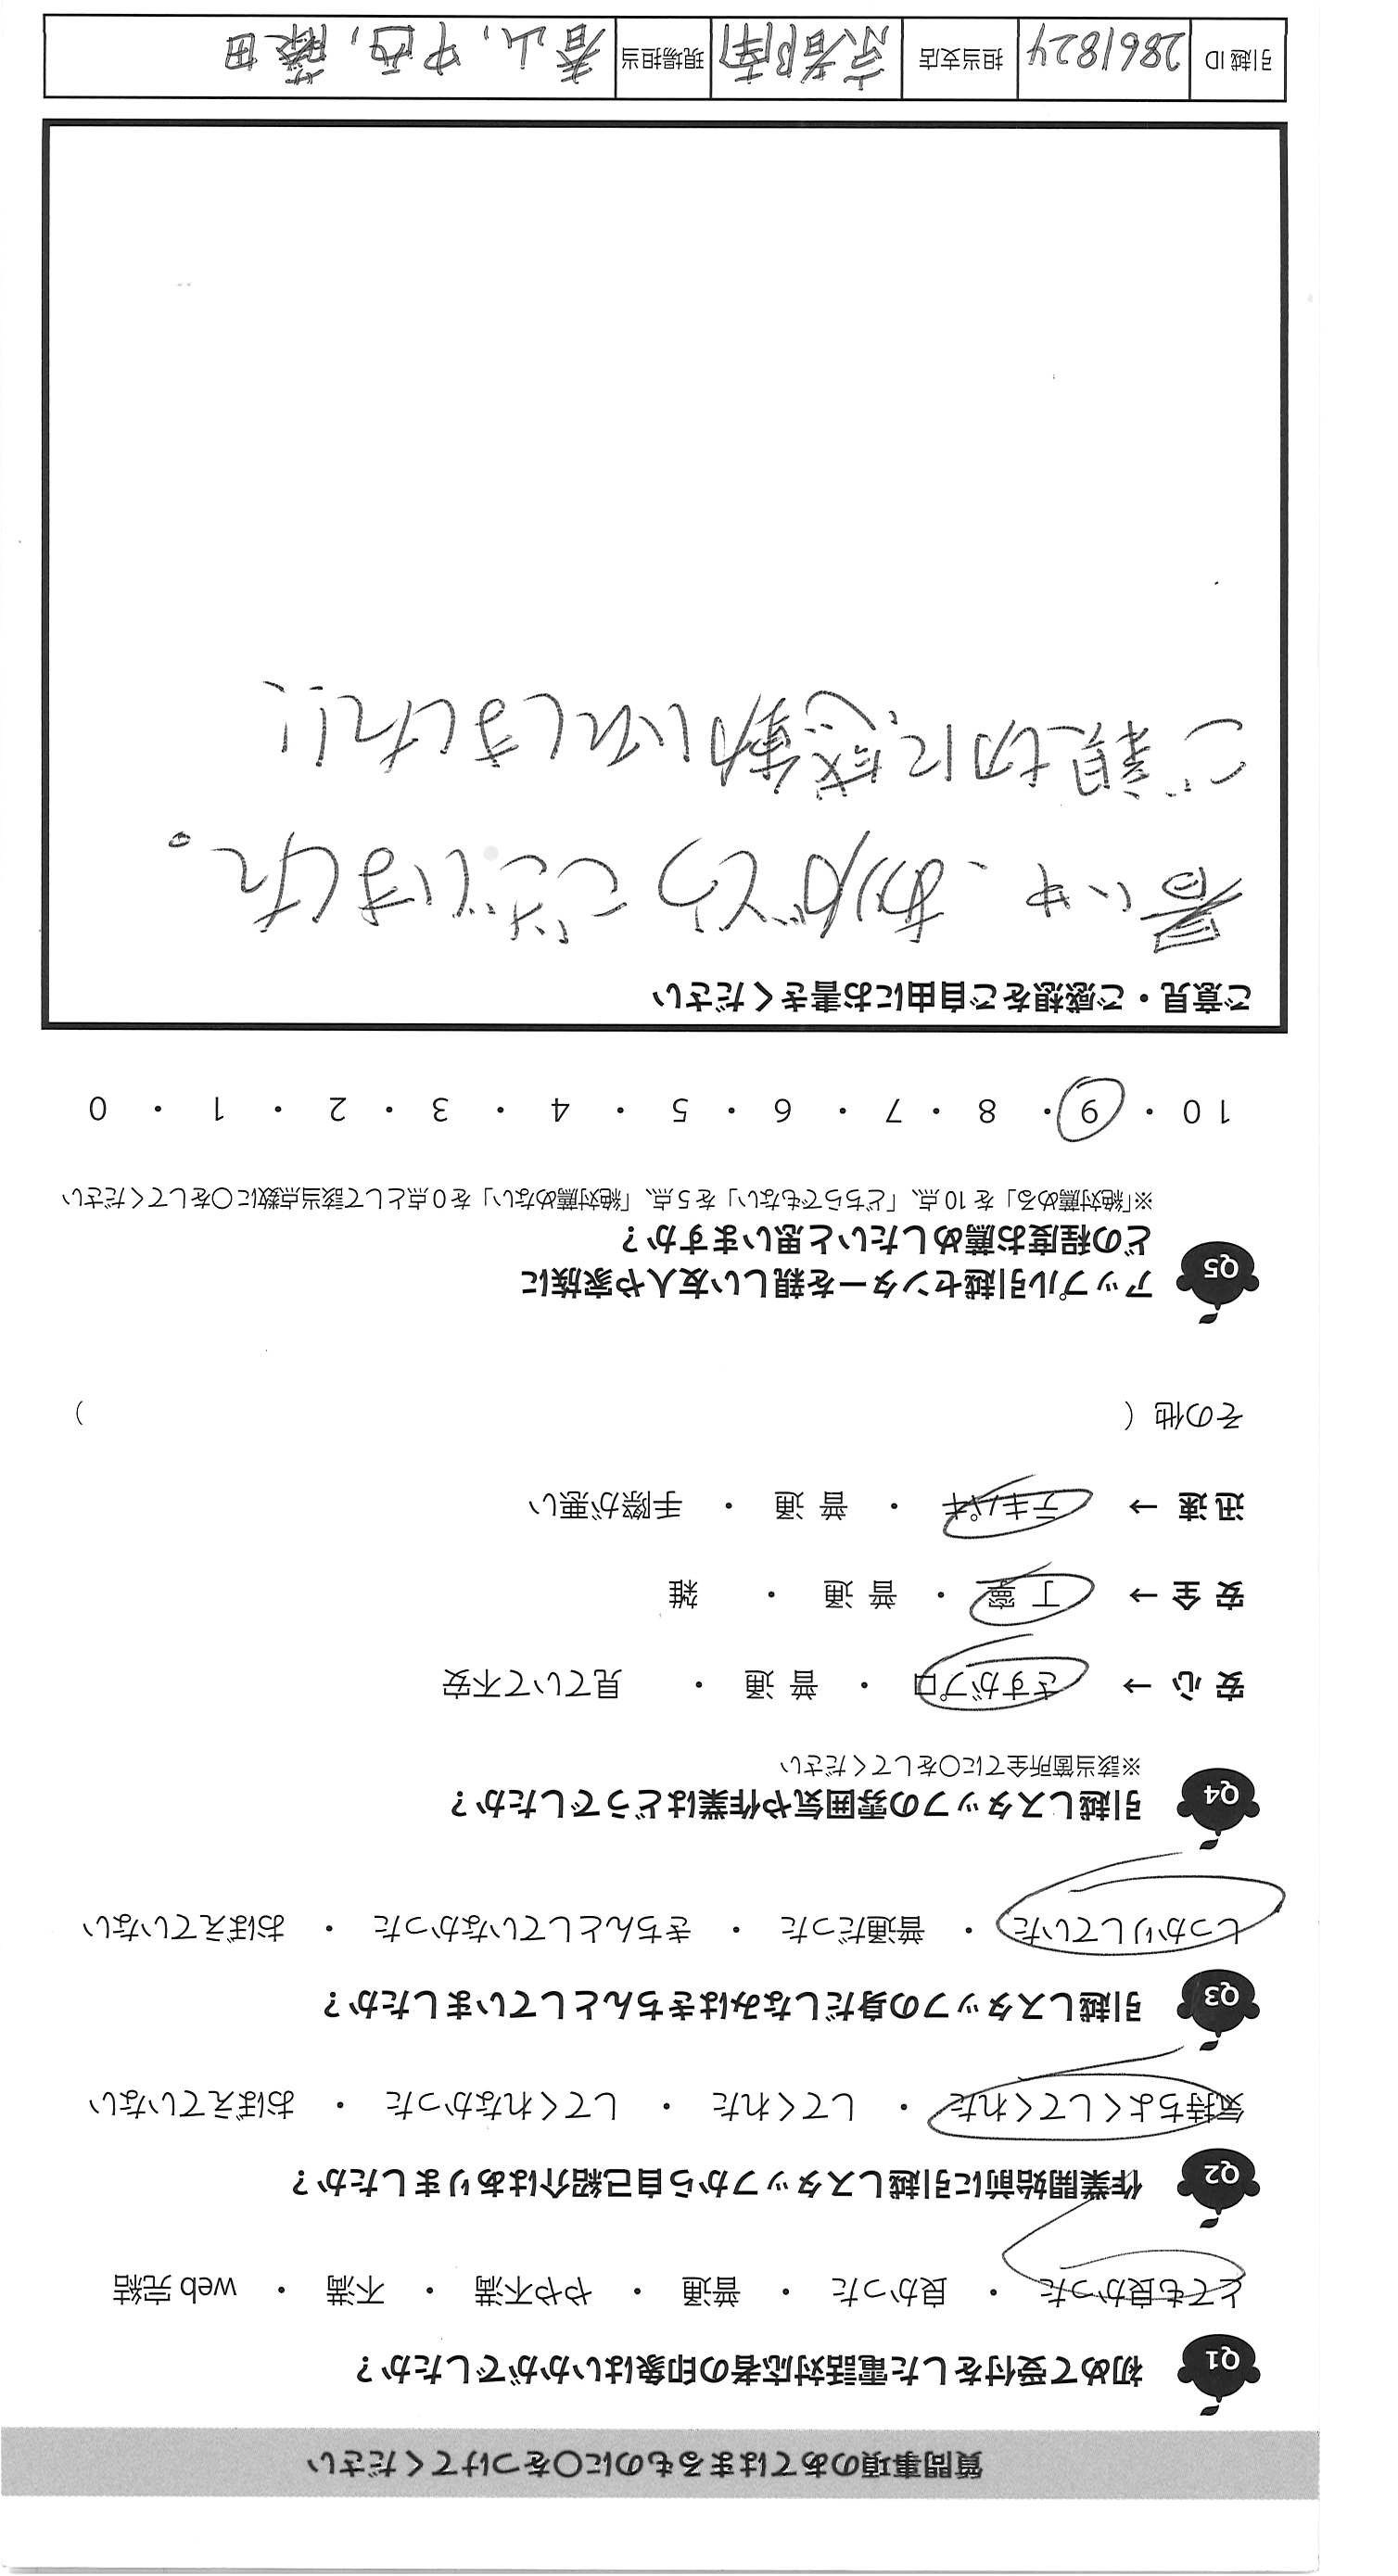 質問事項のあてはまるものに○をつけてください
Q1 初めて受付をした電話対応者の印象はいかがでしたか？
とても良かった ・ 良かった ・ 普通 ・ やや不満 ・ 不満 ・ web 完結
Q2 作業開始前に引越しスタッフから自己紹介はありましたか？
気持ちよくしてくれた ・ してくれた ・ してくれなかった ・ おぼえていない
Q3 引越しスタッフの身だしなみはきちんとしていましたか？
しっかりしていた ・ 普通だった ・ きちんとしていなかった ・ おぼえていない
Q4 引越しスタッフの雰囲気や作業はどうでしたか？
※該当箇所全てに○をしてください
安 心 → さすがプロ ・ 普 通 ・ 見ていて不安
安 全 → 丁 寧 ・ 普 通 ・ 雑
迅 速 → テキパキ ・ 普 通 ・ 手際が悪い
その他（ ）
Q5 アップル引越センターを親しい友人や家族に
どの程度お薦めしたいと思いますか？
※「絶対薦める」を 10 点、「どちらでもない」を 5 点、「絶対薦めない」を 0 点として該当点数に○をしてください
10 ・ 9 ・ 8 ・ 7 ・ 6 ・ 5 ・ 4 ・ 3 ・ 2 ・ 1 ・ 0
ご意見・ご感想をご自由にお書きください
暑い中、ありがとうございました。
ご親切に感動いたしました!!
引越 ID 2861824 担当支店 京都南 現場担当 春山, 中西, 藤田